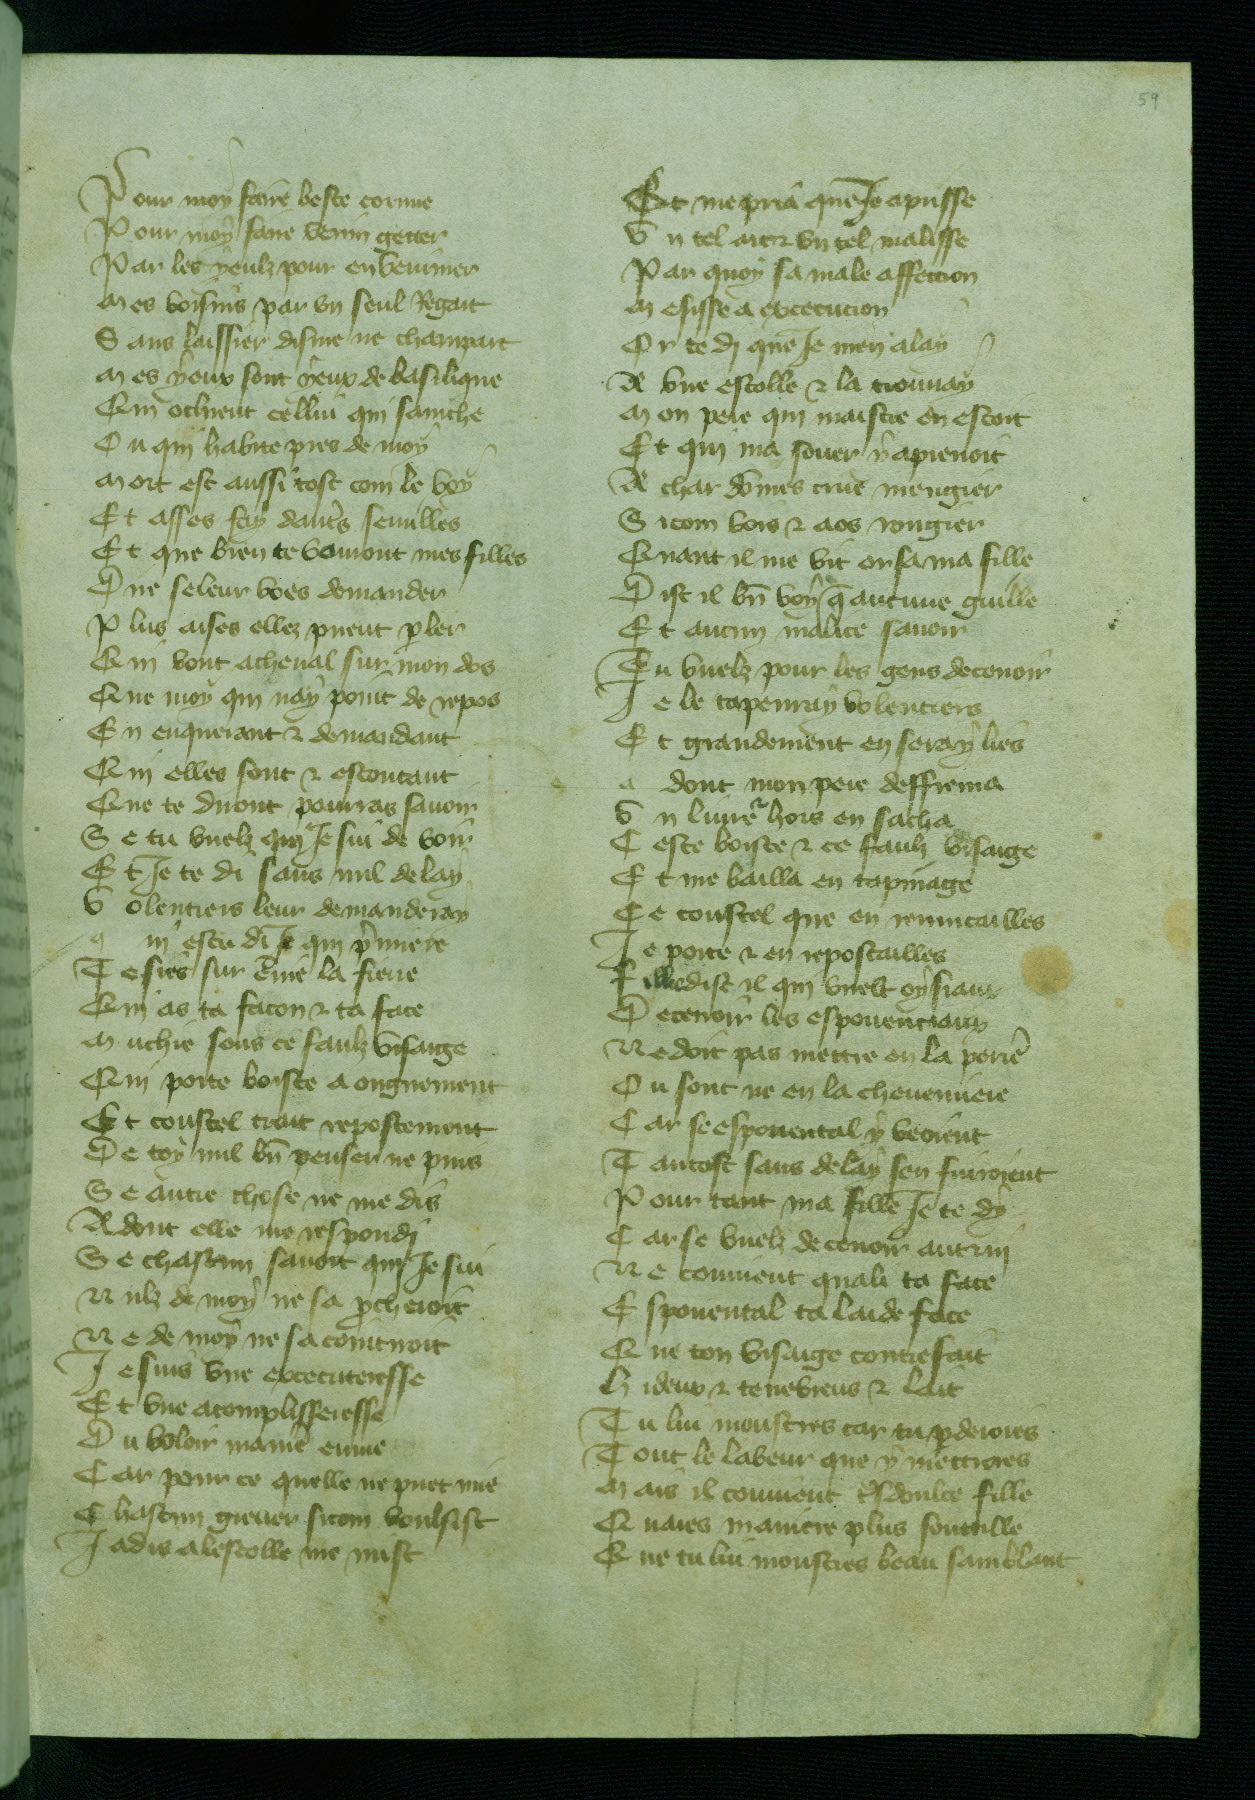 59
Pour moy faire beste cornue
Pour moy faire venin getter
Par les yeulz pour envenimer
Mes voisins par un seul Regart
Sans laissier disme ne champart
Mes yeux sont yeux de basilique
Qui ochient cellui qui saniche
Ou qui habite pres de moy
Mort est aussi tost com le voy
Et asses say dautres semilles
Et que bien te diront mes filles
Di ne se leur voes demander
Plus aises ellez puent pler
Qui vont acheval sur mon dos
Que moy qui nay point de repos
En enquerant & demandant
Qui elles sont & escoutant
Que te diront pourras savoir
Se tu vuelz qui Je sui de voir
Et Je te di sans nul delay
Volentiers leur demanderay
q ui estu di Je qui pmiere
Te sies sur Envie la fiere
Qui as ta facon & ta face
Muchie sous ce faulz visaige
Qui porte boiste a ongnement
Et coustel trait repostement
De toy nul bn penser ne puis
Se autre chose ne me dis
Adont elle me respondi
Se chascun savoit qui Je sui
Nulz de moy ne sa pcheroit
Ne de moy ne sacointroit
Je suis une excecuteresse
Et une acomplisseresse
Du voloir mame envie
Car pour ce quelle ne puet mie
Chascun grever sicom voulsist
Jadis alescolle me mist
Et me pria que Je apnisse
Un tel art & un tel malisse
Par quoy sa male affection
Mesisse a excecucion
Or te di que Je men alay
A une escolle & la trouvay
Mon pere qui maistre en estoit
Et qui ma souer y aprenoit
A char dommes crue mengier
Sicom vois & aos rongier
Quant il me vit or sa ma fille
Dist il bn voy q aucune guille
Et aucun malice savoir
Tu vuelz pour les gens decevoir
Je le tapenray volentiers
Et grandement en seray lies
a dont mon pere deffrema
Un livre hors en sacha
Ceste boiste & ce faulz visaige
Et me bailla en tapinage
Ce coustel que en renuicailles
Je porte & en repostailles
Fille dist il qui vuelt oysiaux
Decevoir les espouentaux
Ne doit pas mettre en la perie
Ou sont ne en la cheneviere
Car se espouental y veoient
Tantost sans delay sen fuiroient
Pour tant ma fille Je te dy
Car se vuelz decevoir autrui
Ne convient quali ta face
Espouental ta laide face
Que ton visaige contrefait
Hideux & tenebreus & lait
Tu lui moustres car tu pderoies
Tout le labeur que y mettroies
Mais il convient tresdoulce fille
Quaies maniere plus soutille
Que tu lui moustres beau samblant